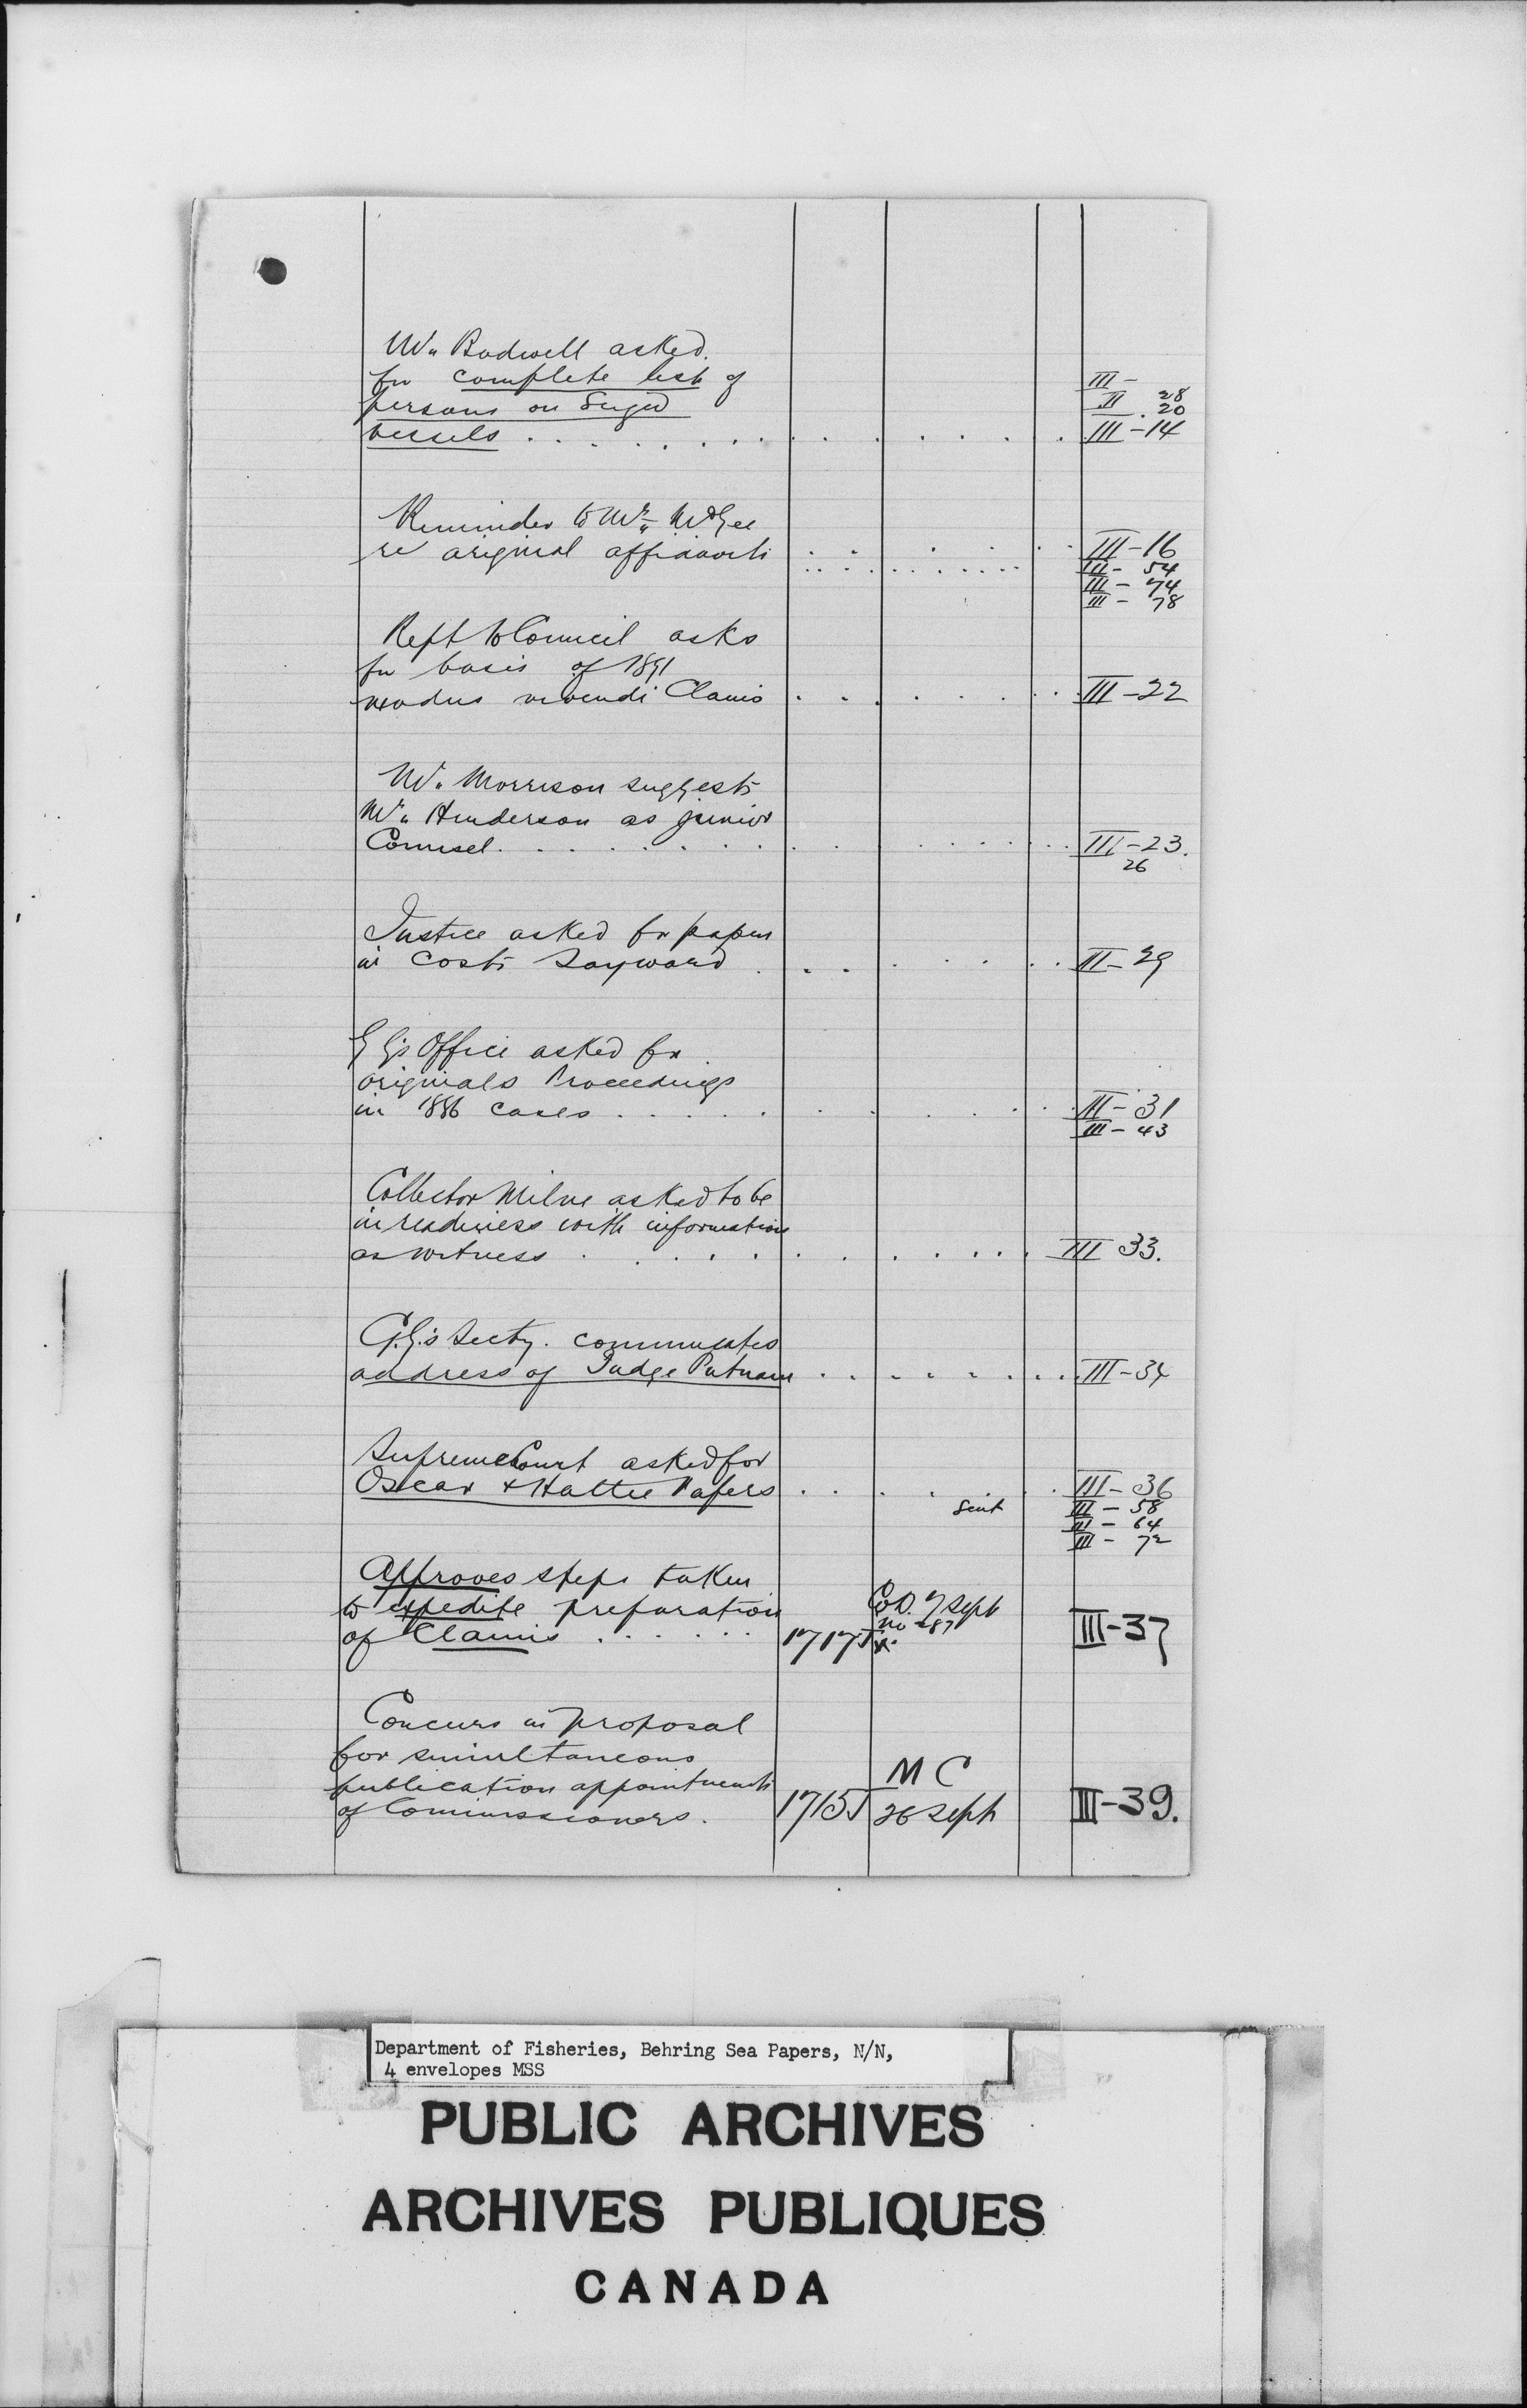 Mr. Bodwell asked.
for complete list of
persons on Seized
vessels . . . . . . . . . . . . . .
III -
II 28
. 20
III - 14
Reminder to Mr. McGee
re original affidavits . . . . . . III - 16
III - 54
III - 74
III - 78
Rept to Council asks
for basis of 1891
modus vivendi Claims . . . . . . . III - 22
Mr. Morrison suggests
Mr. Henderson as junior
Counsel. . . . . . . . . . . . . . III - 23.
26
Justice asked for papers
in Costs Sayward . . . . . . . . . III - 29
G G's Office asked for
originals Proceedings
in 1886 cases . . . . . . . . . . III - 31
III - 43
Collector Milne asked to be
in readiness with information
as witness . . . . . . . . . . . . III 33.
G.G.'s Secty. communicates
address of Judge Putnam . . . . . . . . III - 34
Supreme Court asked for
Oscar & Hattie Papers . . . . . . III - 36
sent III - 58
III - 64
III - 72
Approves steps taken
to expedite preparation Co.D. 7 Sept
of Claims . . . . . . 1717 No 287 III - 37
Concurs in proposal
for simultaneous
publication appointments M C
of Commissioners. 1715 26 Sept III - 39.
Department of Fisheries, Behring Sea Papers, N/N,
4 envelopes MSS
PUBLIC ARCHIVES
ARCHIVES PUBLIQUES
CANADA